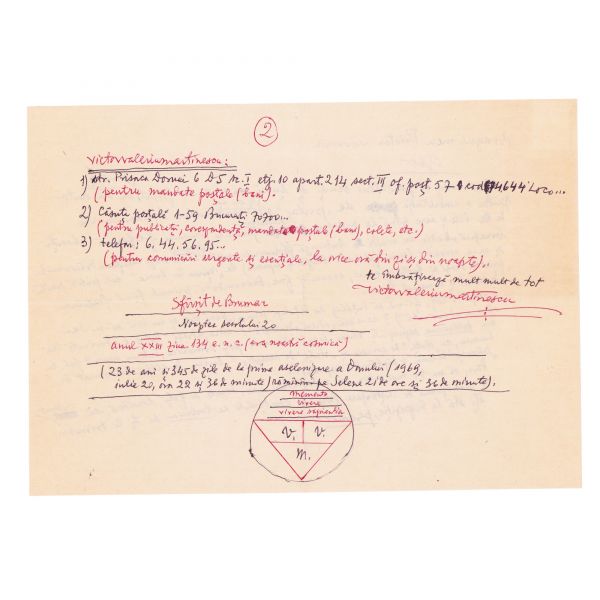 2
victorvaleriumartinescu:
1) str. Prisaca Dornei 6 D5 sc. I etj. 10 apart. 214 sect. III of. poșt. 57 cod 74644 Loco...
(pentru mandate poștale (bani).
2) Căsuța poștală 1-59 București 70700...
(pentru publicații, corespondență, mandate poștale (bani), colete, etc.)
3) telefon: 6.44.56.95...
(pentru comunicări urgente și esențiale, la orice oră din zi și din noapte)...
te îmbrățișează mult mult de tot
victorvaleriumartinescu
Sfîrșit de Brumar
Noaptea secolului 20
anul XXIII ziua 134 e.n.c. (era noastră cosmică)
(23 de ani și 345 de zile de la prima aselenizare a Omului (1969,
iulie 20, ora 22 și 36 de minute) rămînînd pe Selene 21 de ore și 36 de minute).
memento
vivere
vivere sapientia
V. V.
M.